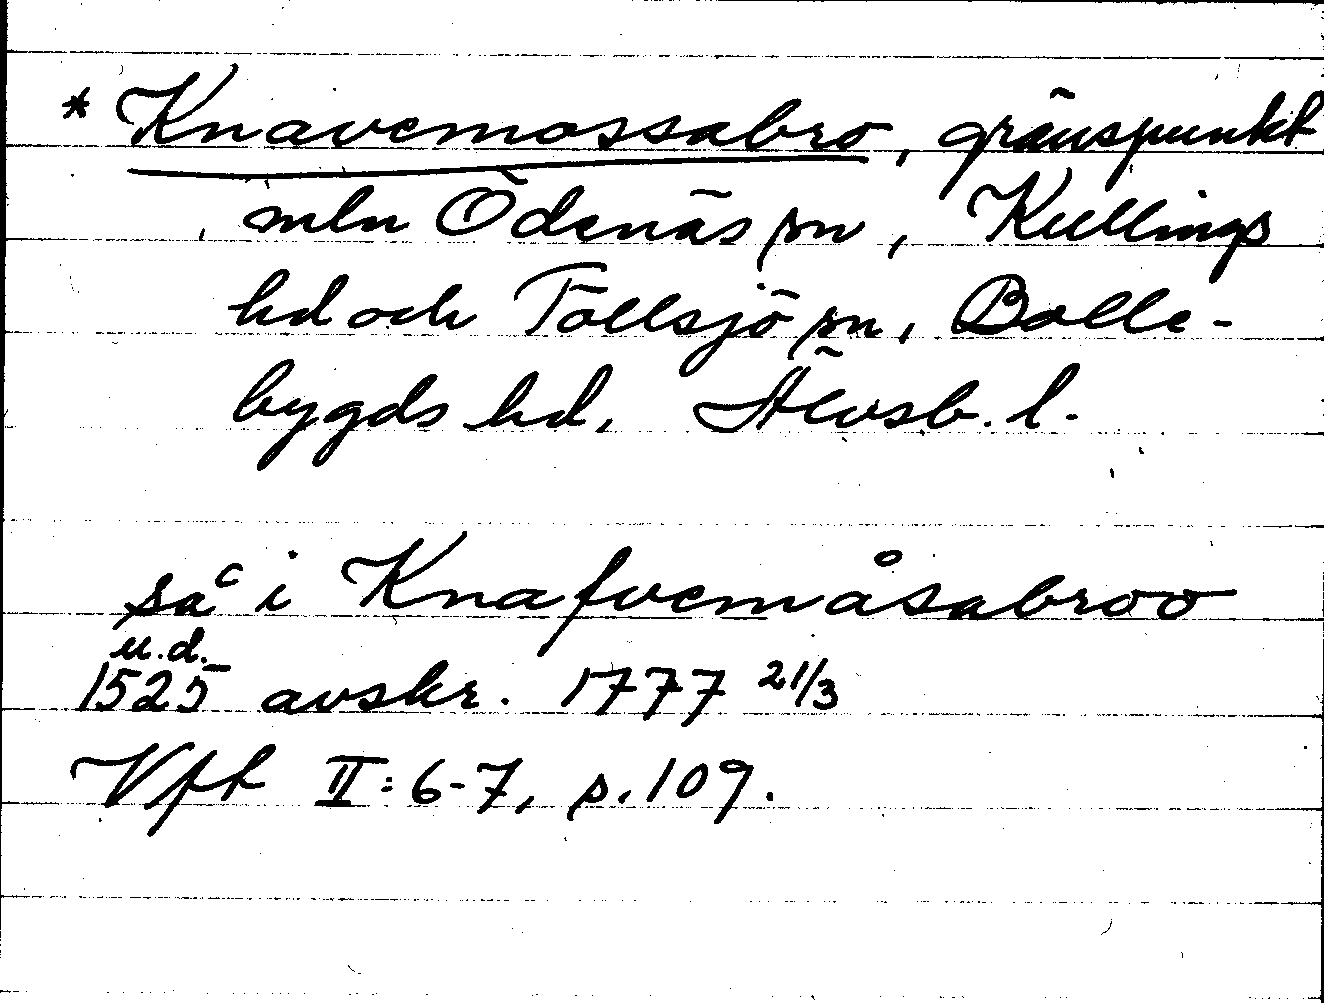 * Knavemossabro, gränspunkt
mln Ödenäs sn, Kullings
hd och Töllsjö sn, Bolle-
bygds hd, Älvsb. l.
så i Knafvemåsabroo
u.d.
1525 avskr. 1777 21/3
Vft II: 6-7, p. 109.